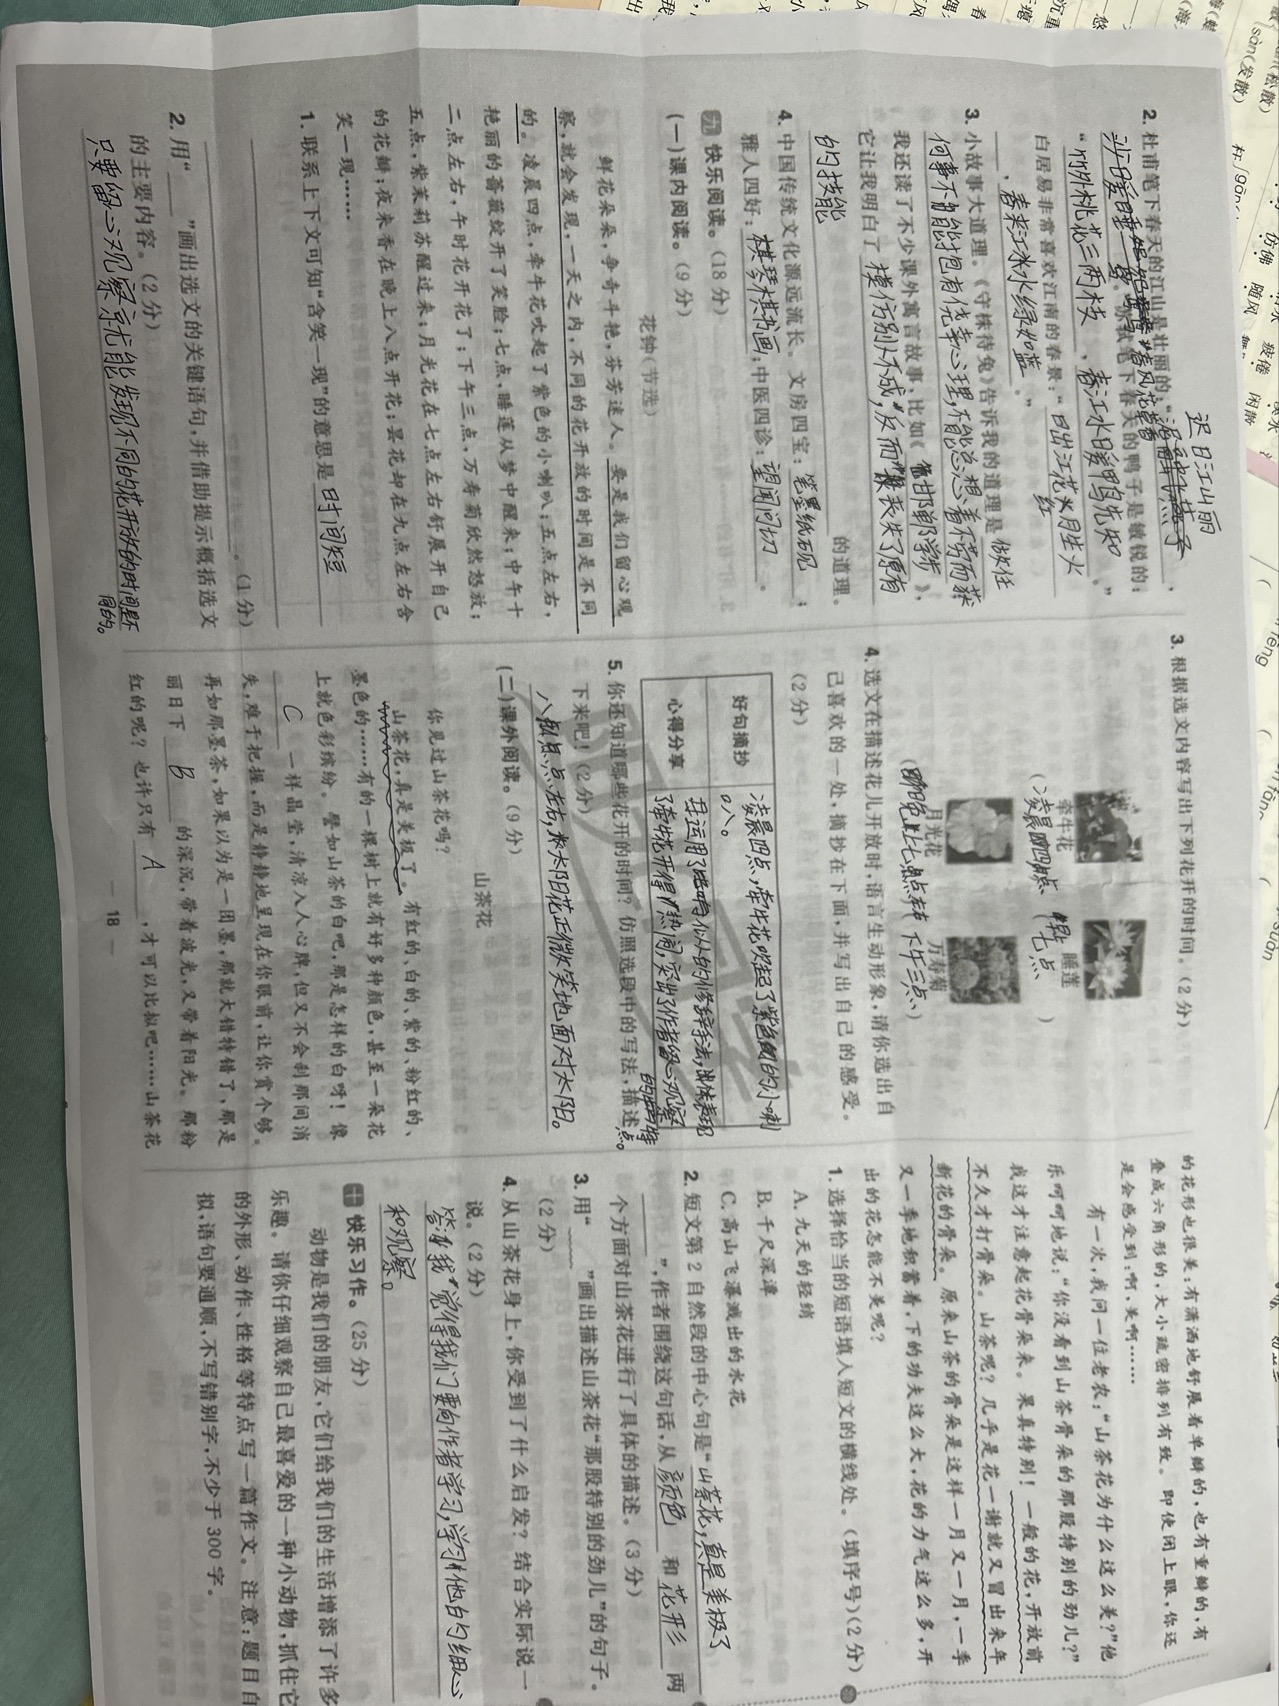 2. 杜甫笔下春天的江山是壮丽的:“
迟日江山丽
。苏轼笔下春天的鸭子是敏锐的:
“竹外桃花三两枝,春江水暖鸭先知。”
白居易非常喜欢江南的春景:“日出江花红
,春来江水绿如蓝。”
3. 小故事大道理。《守株待兔》告诉我的道理是做任
何事不能抱有侥幸心理,不能总想着不劳而获
我还读了不少课外寓言故事,比如《邯郸学步》,
它让我明白了模仿别人不成,反而丧失了原有
的技能的道理。
4. 中国传统文化源远流长。文房四宝:笔墨纸砚;
雅人四好:琴棋书画;中医四诊:望闻问切。
九 快乐阅读。(18分)
(一)课内阅读。(9分)
花钟(节选)
鲜花朵朵,争奇斗艳,芬芳迷人。要是我们留心观
察,就会发现,一天之内,不同的花开放的时间是不同
的。凌晨四点,牵牛花吹起了紫色的小喇叭;五点左右,
艳丽的蔷薇绽开了笑脸;七点,睡莲从梦中醒来;中午十
二点左右,午时花开花了;下午三点,万寿菊欣然怒放;
五点,紫茉莉苏醒过来;月光花在七点左右舒展开自己
的花瓣;夜来香在晚上八点开花;昙花却在九点左右含
笑一现……
1. 联系上下文可知“含笑一现”的意思是时间短
。(1分)
2. 用“____”画出选文的关键语句,并借助提示概括选文
的主要内容。(2分)
只要留心观察就能发现不同的花开放的时间是不
同的。
3. 根据选文内容写出下列花开的时间。(2分)
牵牛花 睡莲
(凌晨四点) (七点)
月光花 万寿菊
(晚上七点左右) (下午三点)
4. 选文在描述花儿开放时,语言生动形象,请你选出自
己喜欢的一处,摘抄在下面,并写出自己的感受。
(2分)
好句摘抄 凌晨四点,牵牛花吹起了紫色的小喇
叭。
心得分享 运用了拟人的修辞手法,表现
了牵牛花开得热闹,突出了作者留心观察
的特
点。
5. 你还知道哪些花开的时间?仿照选段中的写法,描述
下来吧!(2分)
八点左右,太阳花正微笑地面对太阳。
(二)课外阅读。(9分)
山茶花
你见过山茶花吗?
山茶花,真是美极了。有红的、白的、紫的、粉红的、
墨色的……有的一棵树上就有好多种颜色,甚至一朵花
上就色彩缤纷。譬如山茶的白吧,那是怎样的白呀!像
C一样晶莹,清凉入人心脾,但又不会刹那间消
失,难于把握,而是静静地呈现在你眼前,让你赏个够。
再如那墨茶,如果以为是一团墨,那就大错特错了,那是
丽日下B的深沉,带着波光,又带着阳光。那粉
红的呢?也许只有A,才可以比拟吧……山茶花
— 18 —
的花形也很美:有潇洒地舒展着单瓣的,也有重瓣的,有
叠成六角形的,大小疏密排列有致。即使闭上眼,你还
是会感受到:啊,美啊……
有一次,我问一位老农:“山茶花为什么这么美?”他
乐呵呵地说:“你没看到山茶骨朵的那股特别的劲儿?”
我这才注意起花骨朵来。果真特别!一般的花,开放前
不久才打骨朵。山茶呢?几乎是花一谢就又冒出来年
新花的骨朵。原来山茶的骨朵是这样一月又一月,一季
又一季地积蓄着,下的功夫这么大,花的力气这么多,开
出的花怎能不美呢?
1. 选择恰当的短语填入短文的横线处。(填序号)(2分)
A. 九天的轻绡
B. 千尺深潭
C. 高山飞瀑溅出的水花
2. 短文第2自然段的中心句是“山茶花,真是美极了
”,作者围绕这句话,从颜色和花形两
个方面对山茶花进行了具体的描述。(3分)
3. 用“____”画出描述山茶花“那股特别的劲儿”的句子。
(2分)
4. 从山茶花身上,你受到了什么启发?结合实际说一
说。(2分)
我觉得我们要向作者学习,学习他的细心
和观察。
十 快乐习作。(25分)
动物是我们的朋友,它们给我们的生活增添了许多
乐趣。请你仔细观察自己最喜爱的一种小动物,抓住它
的外形、动作、性格等特点写一篇作文。注意:题目自
拟,语句要通顺,不写错别字,不少于300字。